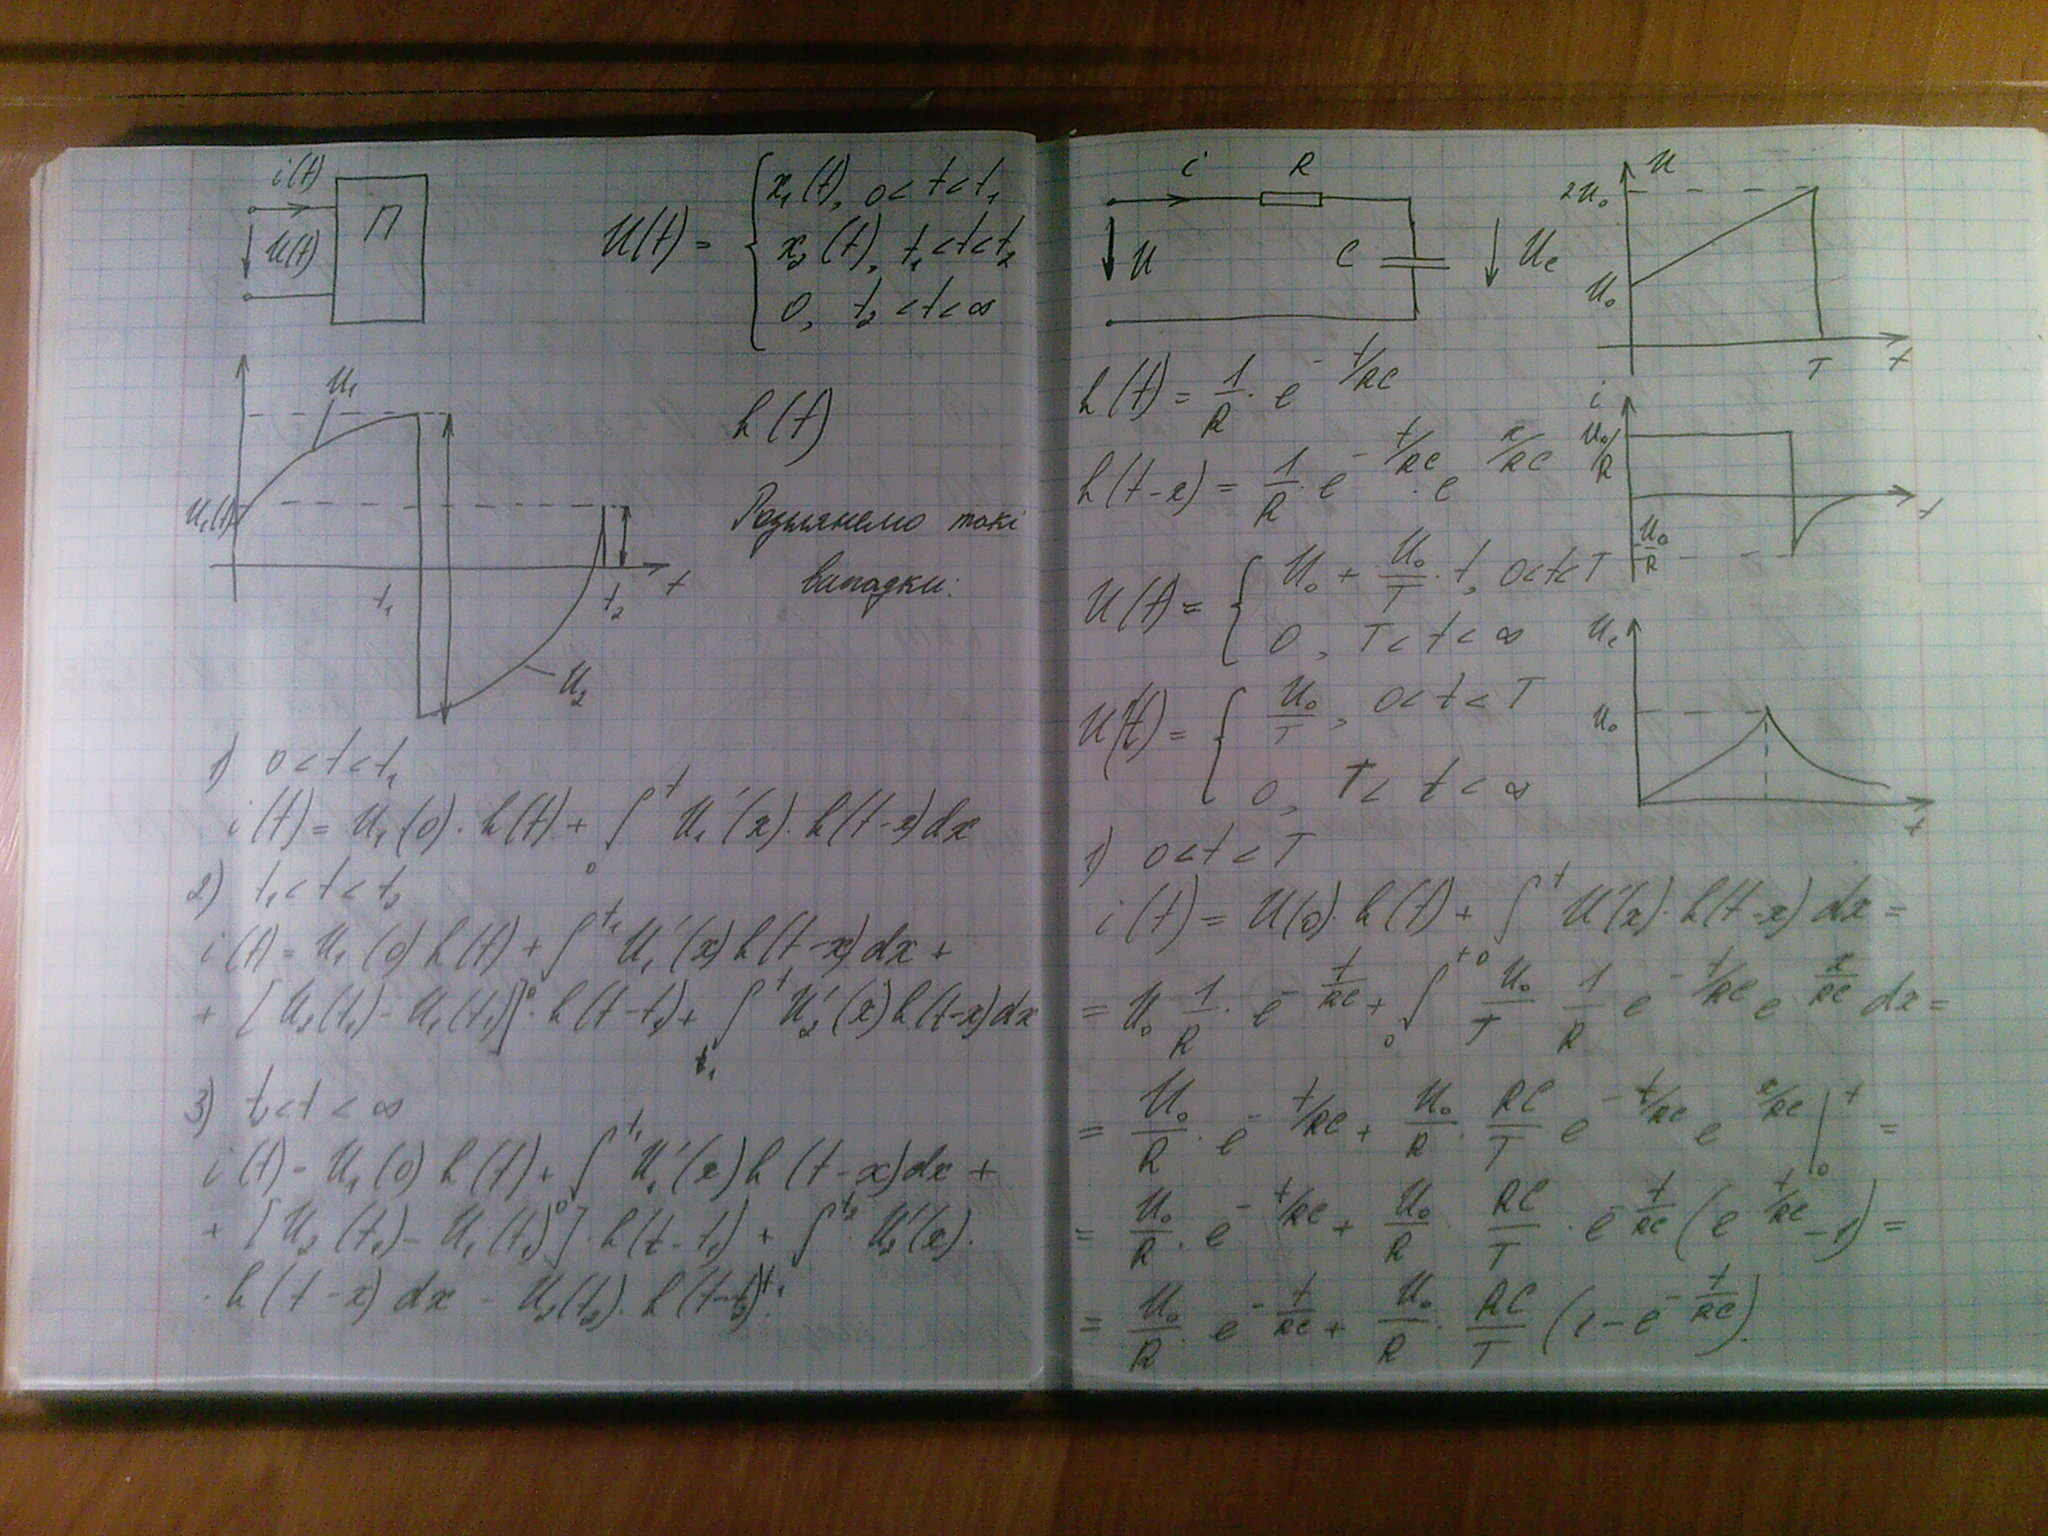 i(t)
П
U(t)
U(t) = { x₁(t), 0 < t < t₁
x₂(t), t₁ < t < t₂
0, t₂ < t < ∞
U₁
U₁(t)
t₁
t₂
t
U₂
h(t)
Розглянемо такі
випадки:
1) 0 < t < t₁
i(t) = U₁(0)·h(t) + ∫₀ᵗ U₁'(x)·h(t-x)dx
2) t₁ < t < t₂
i(t) = U₁(0)h(t) + ∫₀^t₁ U₁'(x)h(t-x)dx +
+ [U₂(t₁) - U₁(t₁)]·h(t-t₁) + ∫_t₁^t U₂'(x)h(t-x)dx
3) t₂ < t < ∞
i(t) = U₁(0)h(t) + ∫₀^t₁ U₁'(x)h(t-x)dx +
+ [U₂(t₁) - U₁(t₁)]·h(t-t₁) + ∫_t₁^t₂ U₂'(x)·
·h(t-x)dx - U₂(t₂)·h(t-t₂).
i
R
U
C
U_c
U
2U₀
U₀
T
t
h(t) = 1/R · e^(-t/RC)
h(t-x) = 1/R · e^(-t/RC) · e^(x/RC)
i
U₀/R
-U₀/R
t
U(t) = { U₀ + U₀/T · t, 0<t<T
0, T < t < ∞
U'(t) = { U₀/T, 0 < t < T
0, T < t < ∞
U_c
U₀
t
1) 0 < t < T
i(t) = U(0)·h(t) + ∫₀ᵗ U'(x)·h(t-x)dx =
= U₀ 1/R · e^(-t/RC) + ∫₀ᵗ U₀/T 1/R e^(-t/RC) e^(x/RC) dx =
= U₀/R · e^(-t/RC) + U₀/R · RC/T e^(-t/RC) e^(x/RC) |₀ᵗ =
= U₀/R · e^(-t/RC) + U₀/R · RC/T · e^(-t/RC) (e^(t/RC) - 1) =
= U₀/R · e^(-t/RC) + U₀/R · RC/T (1 - e^(-t/RC)).